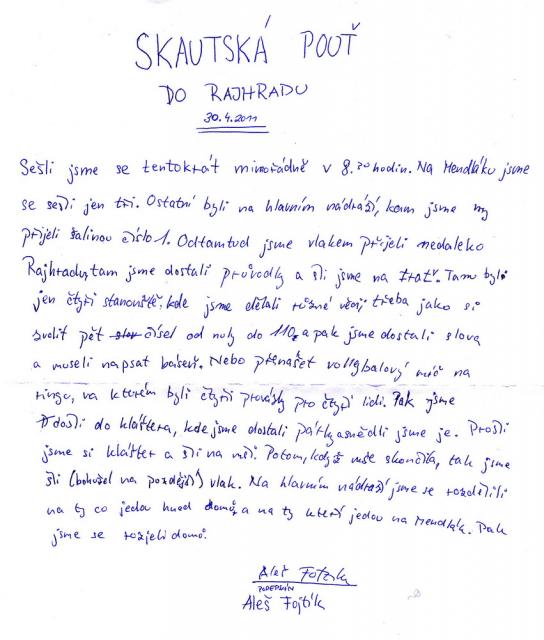 SKAUTSKÁ POUŤ
DO RAJHRADU
30.4.2011
Sešli jsme se tentokrát mimořádně v 8.30 hodin. Na Mendláku jsme
se sešli jen tři. Ostatní byli na hlavním nádraží, kam jsme my
přijeli šalinou číslo 1. Odtamtud jsme vlakem přijeli nedaleko
Rajhradu, tam jsme dostali průvodky a šli jsme na trať. Tam byli
jen čtyři stanoviště, kde jsme dělali různé věci, třeba jako si
zvolit pět slov čísel od nuly do 110, a pak jsme dostali slova
a museli napsat báseň. Nebo přenášet vollybalový míč na
ringu, na kterém byli čtyři provázky pro čtyři lidi. Pak jsme
došli do kláštera, kde jsme dostali párky a snědli jsme je. Prošli
jsme si klášter a šli na mši. Potom, když mše skončila, tak jsme
šli (bohužel na pozdější) vlak. Na hlavním nádraží jsme se rozdělili
na ty co jedou hned domů, a na ty kteří jedou na Mendlák. Pak
jsme se rozjeli domů.
Aleš
PODEPSÁN
Aleš Fojtík